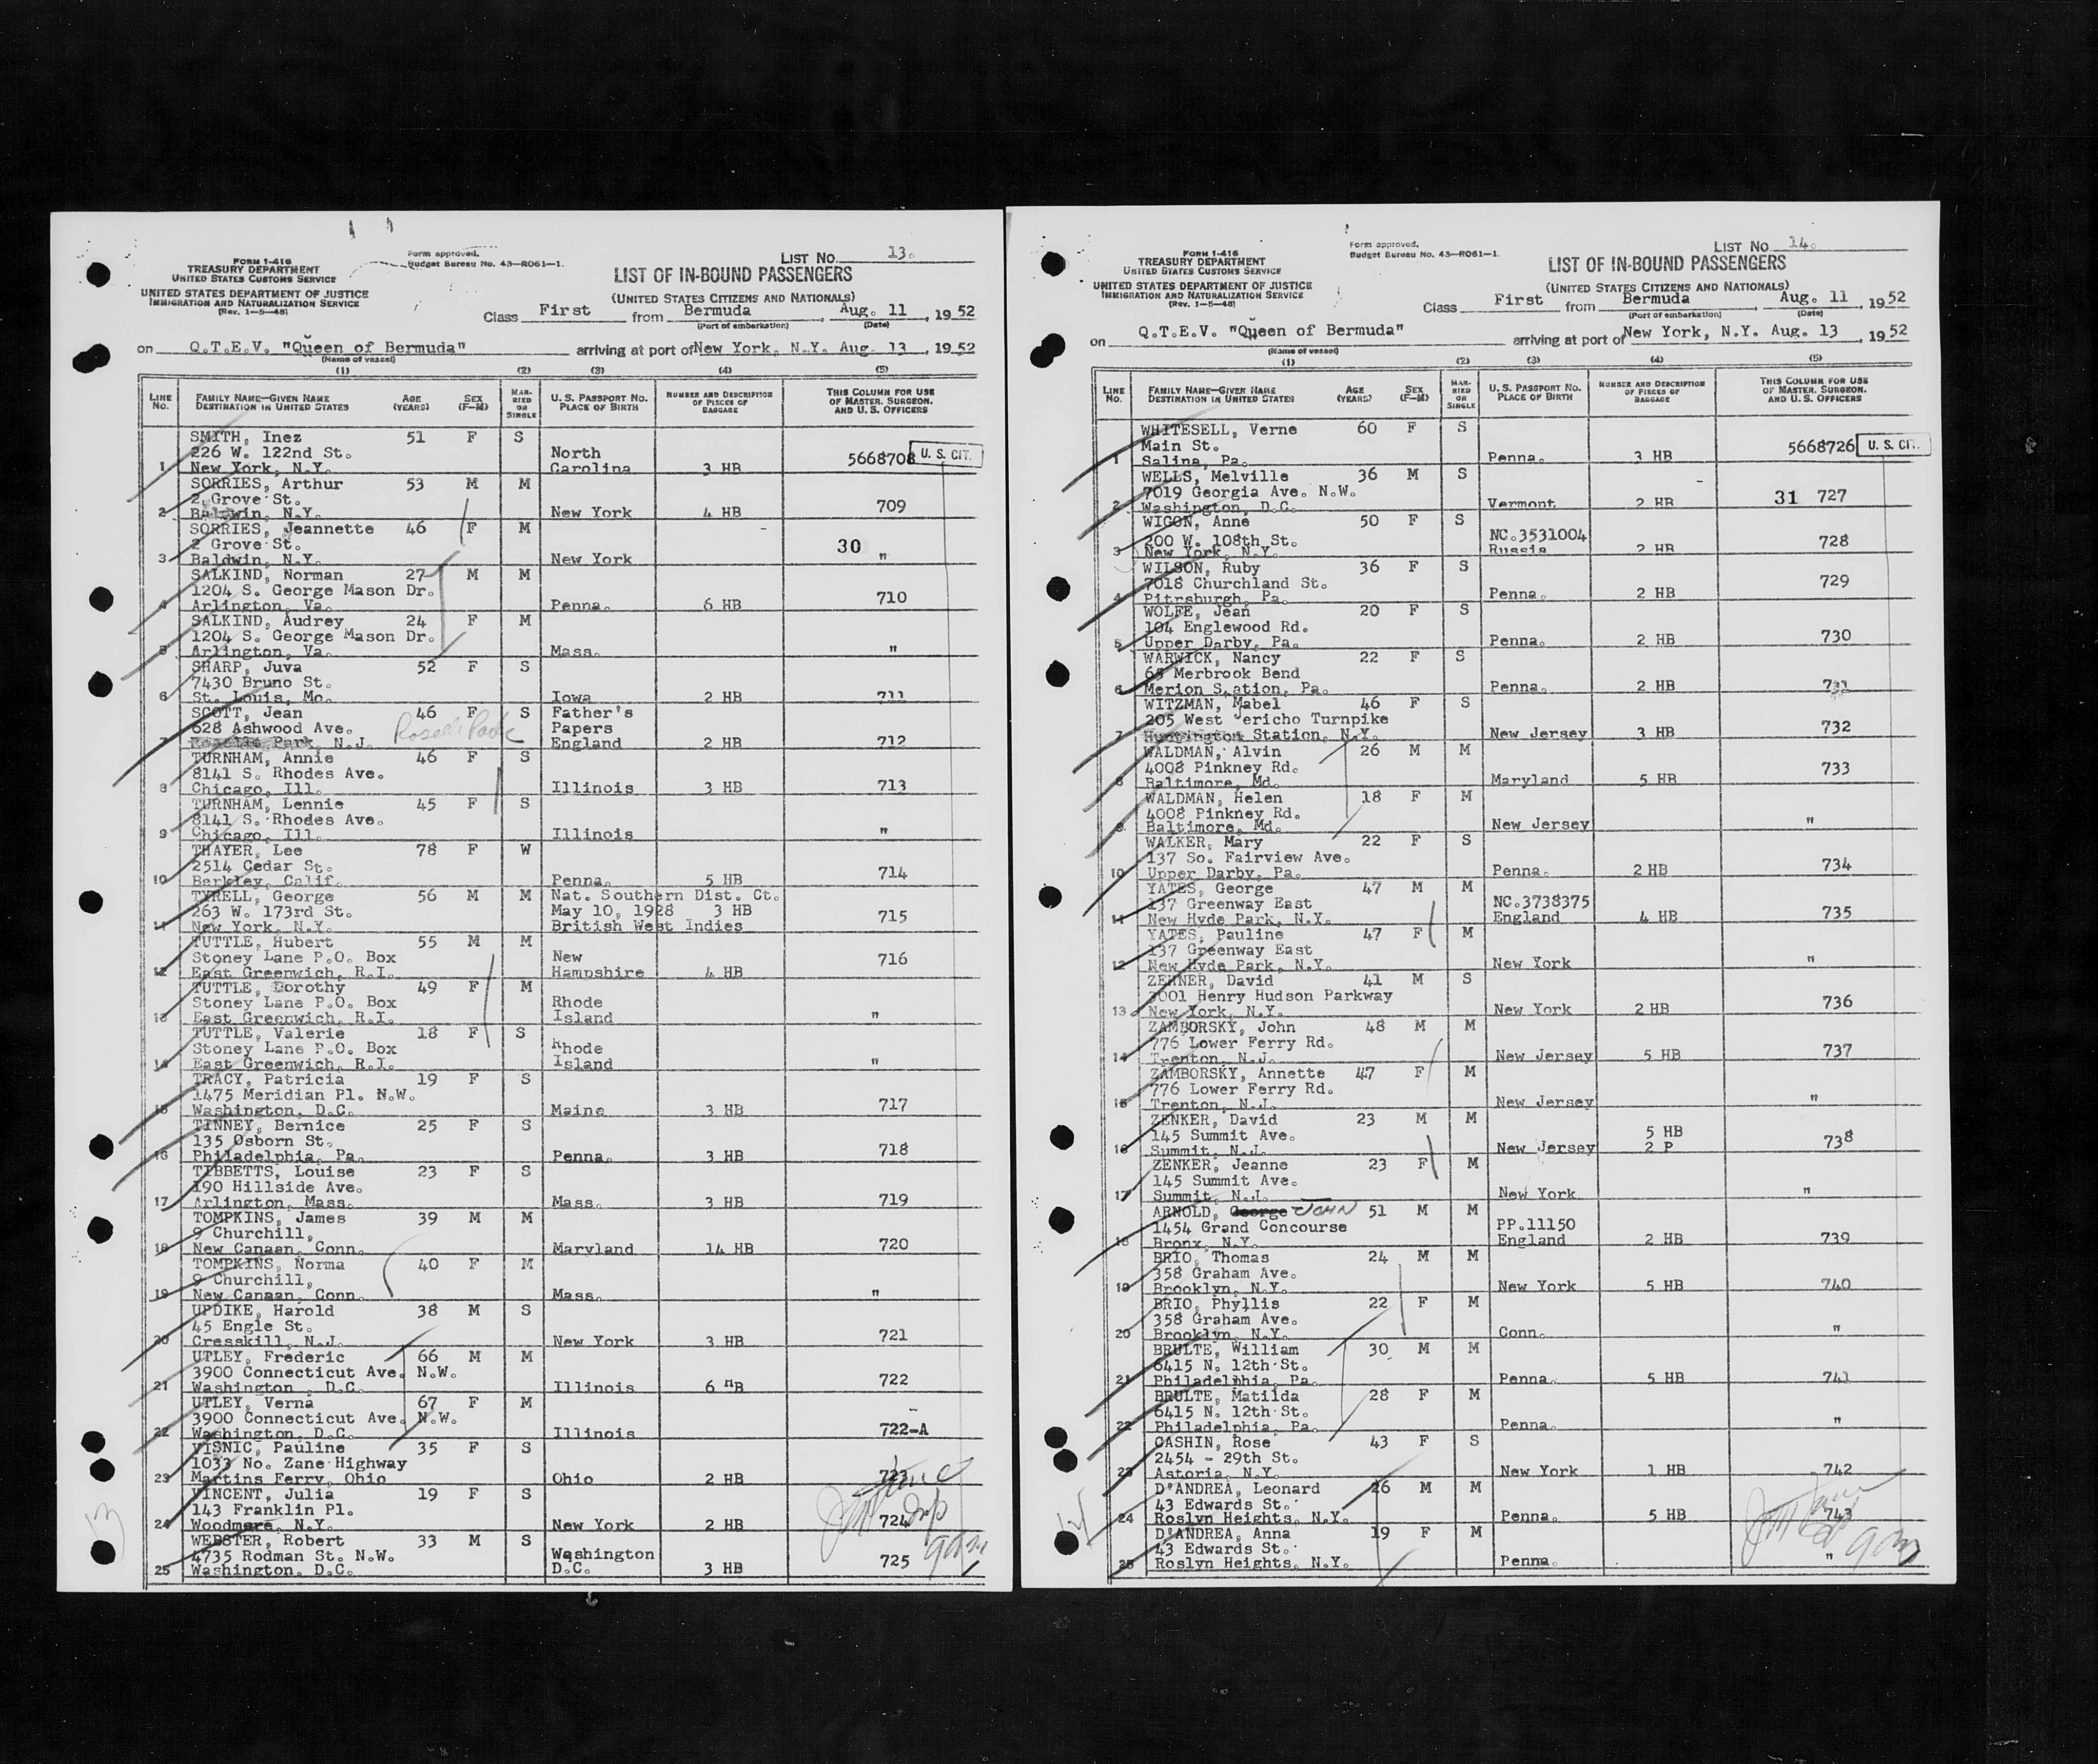 FORM I-416
TREASURY DEPARTMENT
UNITED STATES CUSTOMS SERVICE
UNITED STATES DEPARTMENT OF JUSTICE
IMMIGRATION AND NATURALIZATION SERVICE
(Rev. 1-5-48)
Form approved.
Budget Bureau No. 43-R061-1.
LIST NO. 13.
LIST OF IN-BOUND PASSENGERS
(UNITED STATES CITIZENS AND NATIONALS)
Class First from Bermuda, Aug. 11, 1952
(Port of embarkation) (Date)
on Q.T.E.V. "Queen of Bermuda" arriving at port of New York, N.Y. Aug. 13, 1952
(Name of vessel)
(1) (2) (3) (4) (5)
LINE NO. FAMILY NAME—GIVEN NAME DESTINATION IN UNITED STATES AGE (YEARS) SEX (F-M) MARRIED OR SINGLE U. S. PASSPORT NO. PLACE OF BIRTH NUMBER AND DESCRIPTION OF PIECES OF BAGGAGE THIS COLUMN FOR USE OF MASTER, SURGEON, AND U. S. OFFICERS
SMITH, Inez 51 F S
226 W. 122nd St. North 5668708 U. S. CIT.
1 New York, N.Y. Carolina 3 HB
SORRIES, Arthur 53 M M
2 Grove St. 709
2 Baldwin, N.Y. New York 4 HB
SORRIES, Jeannette 46 F M
2 Grove St. 30 "
3 Baldwin, N.Y. New York
SALKIND, Norman 27 M M
1204 S. George Mason Dr. 710
4 Arlington, Va. Penna. 6 HB
SALKIND, Audrey 24 F M
1204 S. George Mason Dr.
5 Arlington, Va. Mass. "
SHARP, Juva 52 F S
7430 Bruno St.
6 St. Louis, Mo. Iowa 2 HB 711
SCOTT, Jean 46 F S Father's
628 Ashwood Ave. Roselle Park Papers
7 Roselle Park, N.J. England 2 HB 712
TURNHAM, Annie 46 F S
8141 S. Rhodes Ave.
8 Chicago, Ill. Illinois 3 HB 713
TURNHAM, Lennie 45 F S
8141 S. Rhodes Ave.
9 Chicago, Ill. Illinois "
THAYER, Lee 78 F W
2514 Cedar St. 714
10 Berkley, Calif. Penna. 5 HB
TYRELL, George 56 M M Nat. Southern Dist. Ct.
263 W. 173rd St. May 10, 1928 3 HB 715
11 New York, N.Y. British West Indies
TUTTLE, Hubert 55 M M
Stoney Lane P.O. Box New 716
12 East Greenwich, R.I. Hampshire 4 HB
TUTTLE, Dorothy 49 F M
Stoney Lane P.O. Box Rhode
13 East Greenwich, R.I. Island "
TUTTLE, Valerie 18 F S
Stoney Lane P.O. Box Rhode
14 East Greenwich, R.I. Island "
TRACY, Patricia 19 F S
1475 Meridian Pl. N.W.
15 Washington, D.C. Maine 3 HB 717
TINNEY, Bernice 25 F S
135 Osborn St.
16 Philadelphia, Pa. Penna. 3 HB 718
TIBBETTS, Louise 23 F S
190 Hillside Ave.
17 Arlington, Mass. Mass. 3 HB 719
TOMPKINS, James 39 M M
9 Churchill,
18 New Canaan, Conn. Maryland 14 HB 720
TOMPKINS, Norma 40 F M
9 Churchill,
19 New Canaan, Conn. Mass. "
UPDIKE, Harold 38 M S
45 Engle St.
20 Cresskill, N.J. New York 3 HB 721
UTLEY, Frederic 66 M M
3900 Connecticut Ave. N.W.
21 Washington, D.C. Illinois 6 HB 722
UTLEY, Verna 67 F M
3900 Connecticut Ave. N.W.
22 Washington, D.C. Illinois 722-A
VISNIC, Pauline 35 F S
1033 No. Zane Highway
23 Martins Ferry, Ohio Ohio 2 HB 723
VINCENT, Julia 19 F S
143 Franklin Pl.
24 Woodmere, N.Y. New York 2 HB 724
WEBSTER, Robert 33 M S
4735 Rodman St. N.W. Washington
25 Washington, D.C. D.C. 3 HB 725
FORM I-416
TREASURY DEPARTMENT
UNITED STATES CUSTOMS SERVICE
UNITED STATES DEPARTMENT OF JUSTICE
IMMIGRATION AND NATURALIZATION SERVICE
(Rev. 1-5-48)
Form approved.
Budget Bureau No. 43-R061-1.
LIST NO. 14.
LIST OF IN-BOUND PASSENGERS
(UNITED STATES CITIZENS AND NATIONALS)
Class First from Bermuda, Aug. 11, 1952
(Port of embarkation) (Date)
on Q.T.E.V. "Queen of Bermuda" arriving at port of New York, N.Y. Aug. 13, 1952
(Name of vessel)
(1) (2) (3) (4) (5)
LINE NO. FAMILY NAME—GIVEN NAME DESTINATION IN UNITED STATES AGE (YEARS) SEX (F-M) MARRIED OR SINGLE U. S. PASSPORT NO. PLACE OF BIRTH NUMBER AND DESCRIPTION OF PIECES OF BAGGAGE THIS COLUMN FOR USE OF MASTER, SURGEON, AND U. S. OFFICERS
WHITESELL, Verne 60 F S
Main St. 5668726 U. S. CIT.
1 Salina, Pa. Penna. 3 HB
WELLS, Melville 36 M S
7019 Georgia Ave. N.W. 31 727
2 Washington, D.C. Vermont 2 HB
WIGON, Anne 50 F S
200 W. 108th St. NC.3531004 728
3 New York, N.Y. Russia 2 HB
WILSON, Ruby 36 F S
7018 Churchland St. 729
4 Pitrsburgh, Pa. Penna. 2 HB
WOLFE, Jean 20 F S
104 Englewood Rd.
5 Upper Darby, Pa. Penna. 2 HB 730
WARWICK, Nancy 22 F S
65 Merbrook Bend
6 Merion Station, Pa. Penna. 2 HB 731
WITZMAN, Mabel 46 F S
205 West Jericho Turnpike
7 Huntington Station, N.Y. New Jersey 3 HB 732
WALDMAN, Alvin 26 M M
4008 Pinkney Rd. 733
8 Baltimore, Md. Maryland 5 HB
WALDMAN, Helen 18 F M
4008 Pinkney Rd.
9 Baltimore, Md. New Jersey "
WALKER, Mary 22 F S
137 So. Fairview Ave.
10 Upper Darby, Pa. Penna. 2 HB 734
YATES, George 47 M M
137 Greenway East NC.3738375
11 New Hyde Park, N.Y. England 4 HB 735
YATES, Pauline 47 F M
137 Greenway East
12 New Hyde Park, N.Y. New York "
ZEHNER, David 41 M S
3001 Henry Hudson Parkway
13 New York, N.Y. New York 2 HB 736
ZAMBORSKY, John 48 M M
776 Lower Ferry Rd.
14 Trenton, N.J. New Jersey 5 HB 737
ZAMBORSKY, Annette 47 F M
776 Lower Ferry Rd.
15 Trenton, N.J. New Jersey "
ZENKER, David 23 M M
145 Summit Ave. 5 HB
16 Summit, N.J. New Jersey 2 P 738
ZENKER, Jeanne 23 F M
145 Summit Ave.
17 Summit, N.J. New York "
ARNOLD, George JOHN 51 M M
1454 Grand Concourse PP.11150
18 Bronx, N.Y. England 2 HB 739
BRIO, Thomas 24 M M
358 Graham Ave.
19 Brooklyn, N.Y. New York 5 HB 740
BRIO, Phyllis 22 F M
358 Graham Ave.
20 Brooklyn, N.Y. Conn. "
BRULTE, William 30 M M
6415 N. 12th St.
21 Philadelphia, Pa. Penna. 5 HB 741
BRULTE, Matilda 28 F M
6415 N. 12th St.
22 Philadelphia, Pa. Penna. "
CASHIN, Rose 43 F S
2454 - 29th St.
23 Astoria, N.Y. New York 1 HB 742
D'ANDREA, Leonard 26 M M
43 Edwards St.
24 Roslyn Heights, N.Y. Penna. 5 HB 743
D'ANDREA, Anna 19 F M
43 Edwards St.
25 Roslyn Heights, N.Y. Penna. "